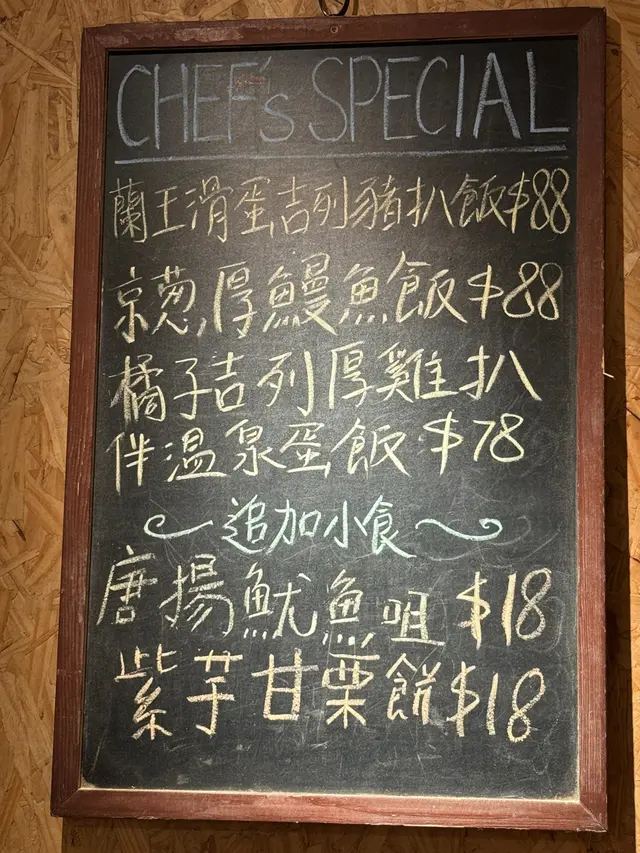 CHEF's SPECIAL
蘭王滑蛋吉列豬扒飯$88
京葱厚鰻魚飯$88
橘子吉列厚雞扒
伴温泉蛋飯$78
追加小食
唐揚魷魚咀$18
紫芋甘栗餅$18